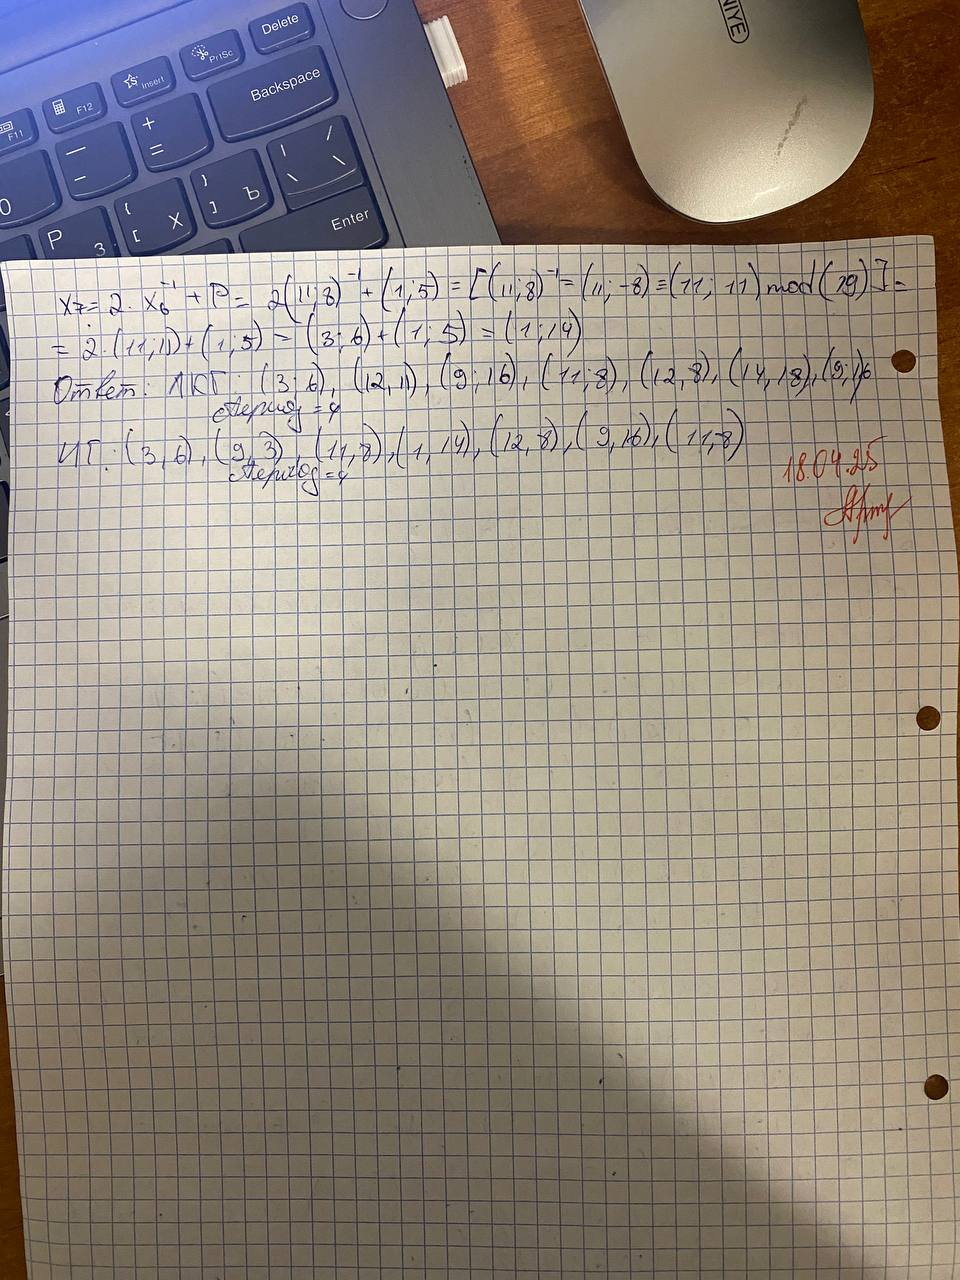 Delete
PrtSc
Insert
F12
F11
Backspace
Enter
NIYE
X₇ = 2 · X₆⁻¹ + P = 2(11; 8)⁻¹ + (1; 5) = [(11; 8)⁻¹ = (11; -8) ≡ (11; 11) mod(19)] =
= 2 · (11; 11) + (1; 5) = (3; 6) + (1; 5) = (1; 14)
Ответ: ЛКГ: (3; 6), (12, 11), (9; 16), (11; 8), (12, 8), (14, 18), (9; 16
Период = 4
ИГ: (3, 6), (9, 3), (11, 8), (1, 14), (12, 8), (9, 16), (11, 8)
Период = 4
18.04.25